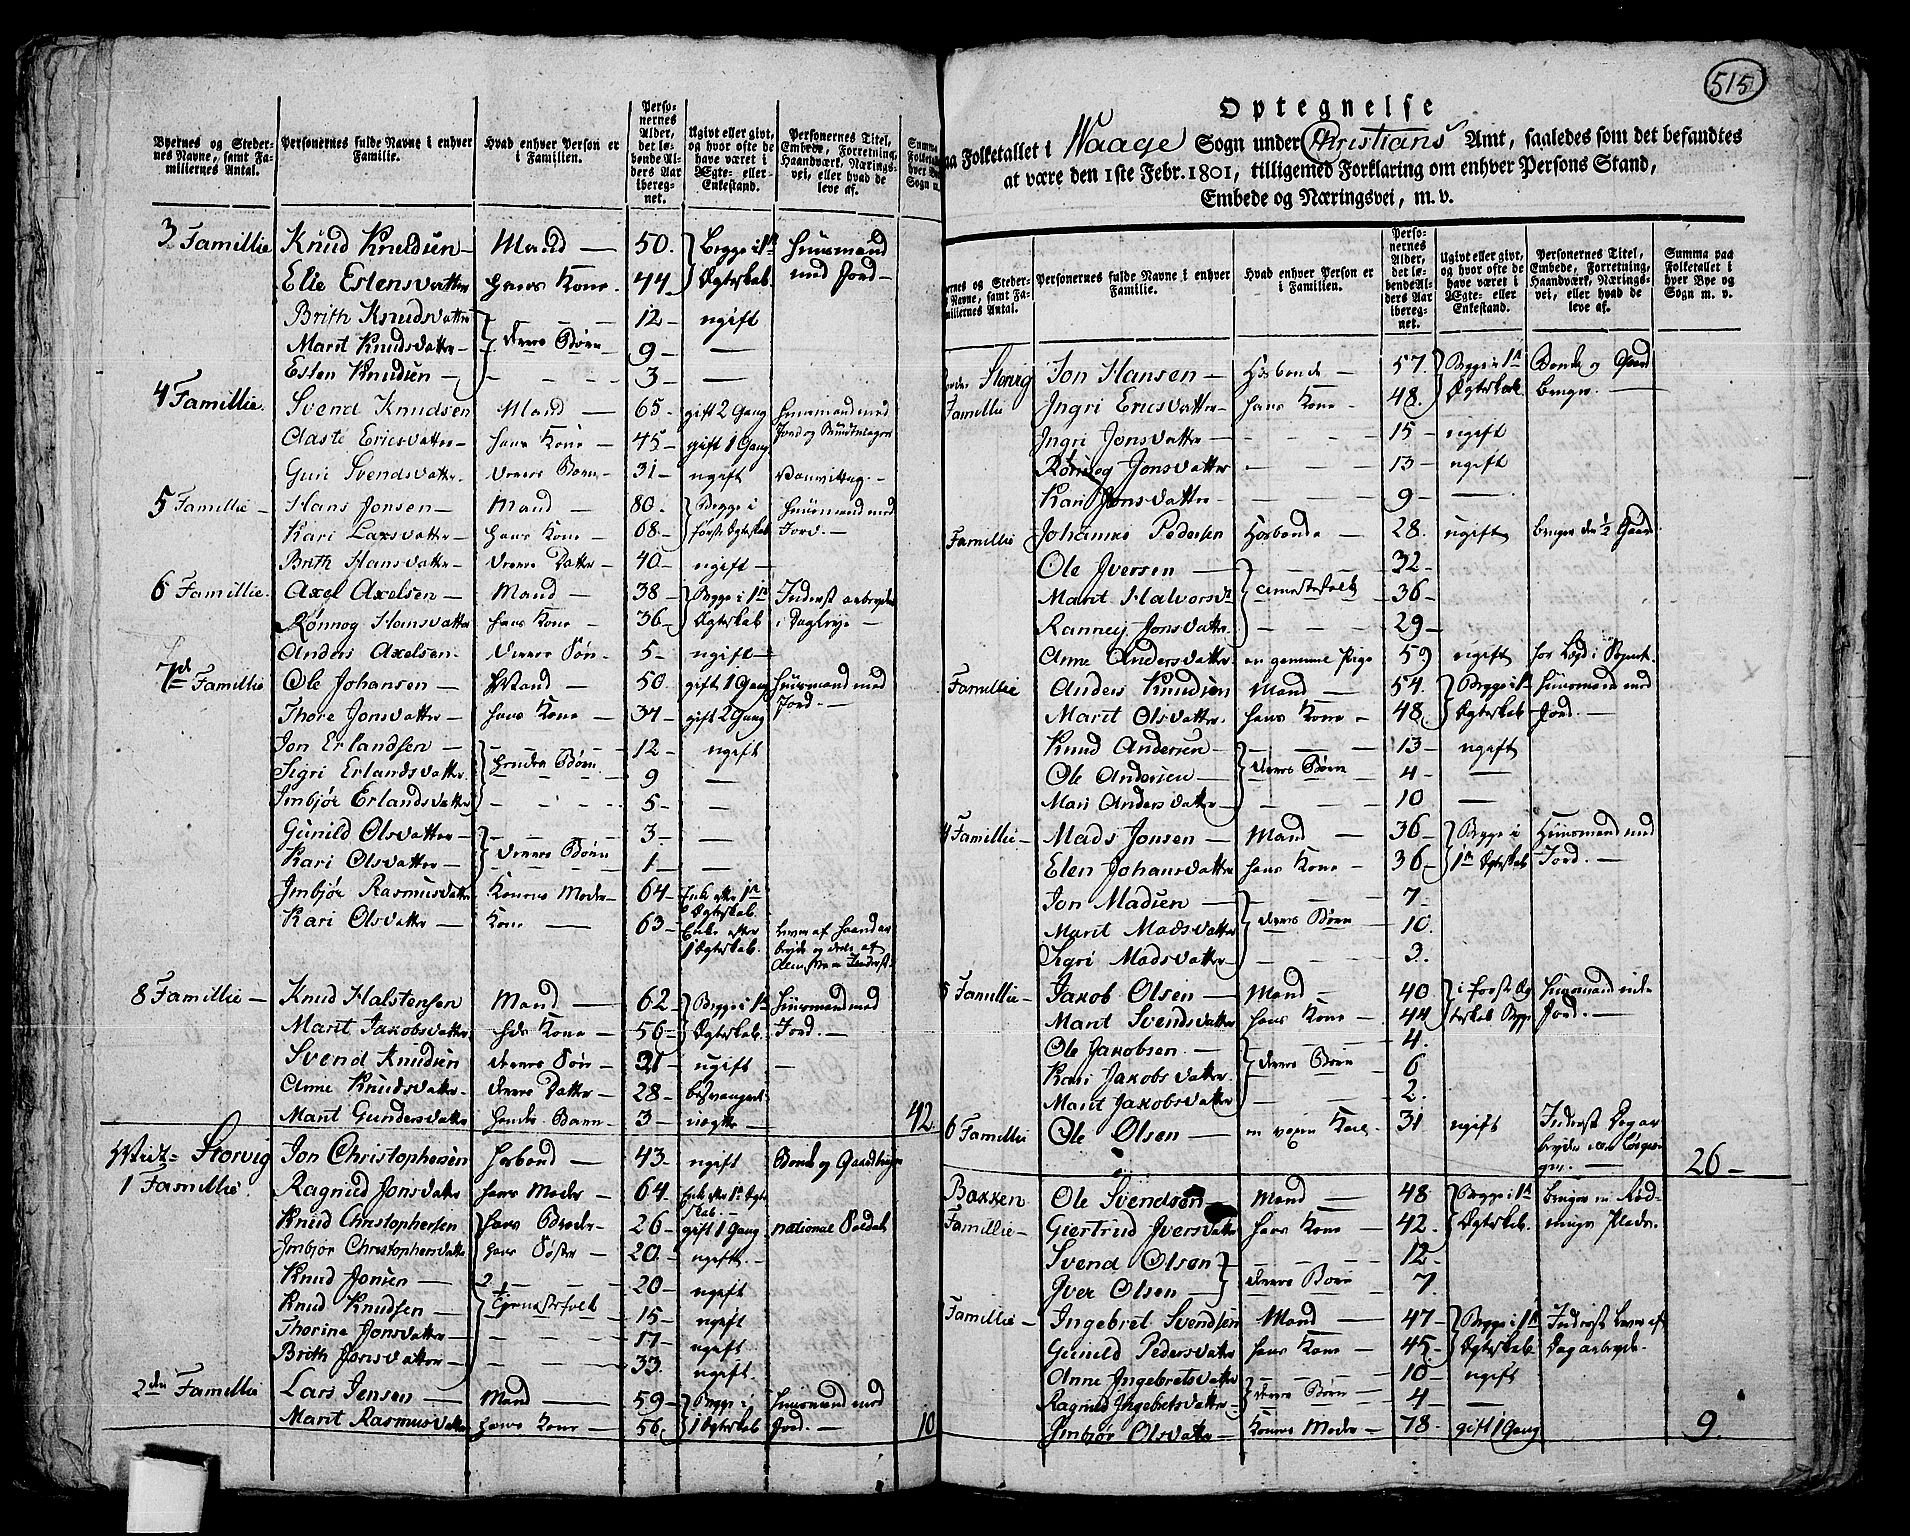 Byernes og Steder- nes Navne, samt Fa- miliernes Antal. | Personernes fulde Navne i enhver Familie. | Hvad enhver Person er i Familien. | Perso- nernes Alder, det lø- bende Al- ders Aar ibereg- net. | Ugivt eller givt, og hvor ofte de have været i Ægte- eller Enkestand. | Personernes Titel, Embede, Forretning, Haandværk, Nærings- vei, eller hvad de leve af.
3 Famillie Knud Knudsen Mand 50. Begge i 1te Huusmand
Elie Estensdatter Hans Kone 44 Ægteskab med Jord
Brith Knudsdatter 12 ugift
Marit Knudsdatter deres Børn 9
Esten Knudsen 3
4 Famillie Svend Knudsen Mand 65 gift 2 Gang Huusmand med
Aaste Ericsdatter hans Kone 45 gift 1 Gang Jord og
Guri Svendsdatter deres Barn 31 ugift Vanvittig
5 Famillie Hans Jonsen Mand 80 Begge i Huusmand med
Kari Larsdatter hans Kone 68 første Ægteskab Jord
Brith Hansdatter deres Datter 40 ugift
6 Famillie Axel Axelsen Mand 38 Begge i 1te Inderst arbeyder
Rønnog Hansdatter hans Kone 36 Ægteskab i Dagleye
Anders Axelsen deres Søn 5 ugift
7de Famillie Ole Johansen Mand 50 gift 1 Gang Huusmand med
Thore Jonsdatter hans Kone 34 gift 2 Gang Jord
Jon Erlandsen 12 ugift
Sigri Erlandsdatter hendes Børn 9
Imbjør Erlandsdatter 5
Gunild Olsdatter 3
Kari Olsdatter deres Børn 1
Imbjør Rasmusdatter Konens Moder 64 Enke efter 1te Ægteskab
Kari Olsdatter Kone 63 Enke efter 1 Ægteskab. lever af Haandar
beyde og
8 Famillie Knud Halstensen Mand 62 Begge i 1te Huusmand med
Marit Jakobsdatter hans Kone 56 Ægteskab Jord
Svend Knudsen deres Søn 31 ugift
Anne Knudsdatter deres Datter 28 besvangert
Marit Gundersdatter hendes Barn 3 uægte 42
Storvig Jon Christophersen Hosbond 43 ugift Bonde og Gaardbruger
1 Famillie Ragnild Jonsdatter hans Moder 64 Enke efter 1te Ægteskab
Knud Christophersen hans Broder 26 gift 1 Gang national Soldat
Imbjør Christophersdatter hans Søster 20 ugift
Knud Jonsen 20 ugift
Knud Knudsen Tjenestefolk 15 ugift
Thorine Jonsdatter 17 ugift
Brith Jonsdatter 33 ugift
2den Famillie Lars Jensen Mand 59 Begge i Huusmand med
Marit Rasmusdatter hans Kone 56 1 Ægteskab Jord 10
515
Optegnelse
paa Folketallet i Waage Sogn under Christians Amt, saaledes som det befandtes
at være den 1ste Febr. 1801, tilligemed Forklaring om enhver Persons Stand,
Embede og Næringsvei, m. v.
Personernes fulde Navne i enhver Familie. | Hvad enhver Person er i Familien. | Perso- nernes Alder, det lø- bende Al- ders Aar ibereg- net. | Ugivt eller givt, og hvor ofte de have været i Ægte- eller Enkestand. | Personernes Titel, Embede, Forretning, Haandværk, Nærings- vei, eller hvad de leve af. | Summa paa Folketallet i hver Bye og Sogn m. v.
Storvig Jon Hansen Hosbonde 57 Begge i 1te Bonde og Gaard
Famillie Ingri Ericsdatter hans Kone 48 Ægteskab bruger
Ingri Jonsdatter 15 ugift
Rønnog Jonsdatter 13 ugift
Kari Jonsdatter 9
Famillie Johannes Pedersen Hosbonde 28 ugift bruger den 1/2 Gaard
Ole Iversen 32
Marit Halvorsdr Tienestefolk 36
Ranney Jonsdatter 29
Anne Andersdatter en gammel Pige 59 ugift har Lægd i Sognet
Famillie Anders Knudsen Mand 54 Begge i 1te Huusmand med
Marit Olsdatter hans Kone 48 Ægteskab Jord
Knud Andersen 13 ugift
Ole Andersen deres Børn 4
Mari Andersdatter 10
4 Famillie Mads Jonsen Mand 36 Begge i Huusmand med
Elen Johansdatter hans Kone 36 1te Ægteskab Jord
Jon Madsen 7
Marit Madsdatter deres Børn 10
Sigri Madsdatter 3
5 Famillie Jakob Olsen Mand 40 i første Æg Huusmand uden
Marit Svendsdatter hans Kone 44 teskab Begge Jord
Ole Jakobsen 4
Kari Jakobsdatter deres Børn 6
Marit Jakobsdatter 2
6 Famillie Ole Olsen en Karl 31 ugift Inderst Dagar
beyder 26
Bakken Ole Svendsen Mand 48 Begge i 1te bruger en Rød-
Famillie Giertrud Iversdatter hans Kone 42 Ægteskab nings Plads
Svend Olsen 12
Iver Olsen deres Børn 7
Famillie Ingebret Svendsen Mand 47 Begge i 1te Inderst lever af
Gunild Pedersdatter hans Kone 45 Ægteskab Dagarbeyde
Anne Ingebretsdatter 10 ugift
Ragnild Ingebretsdatter deres Børn 4
Imbjør Olsdatter Konens Moder 78 gift 1 Gang 9